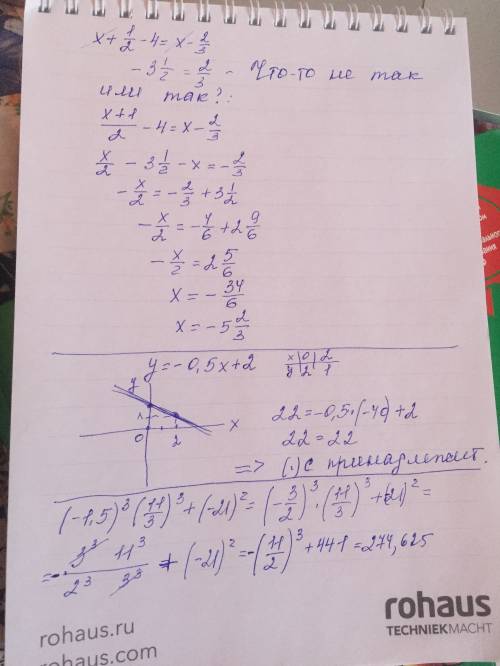 x + 1/2 - 4 = x - 2/3
- 3 1/2 = 2/3 - Что-то не так
или так?:
(x+1)/2 - 4 = x - 2/3
x/2 - 3 1/2 - x = - 2/3
- x/2 = - 2/3 + 3 1/2
- x/2 = - 4/6 + 2 9/6
- x/2 = 2 5/6
x = - 34/6
x = - 5 2/3
y = -0,5x+2
x | 0 | 2
y | 2 | 1
y
1
0 2 x
22 = -0,5·(-40)+2
22 = 22
=> (·) C принадлежит.
(-1,5)³ (11/3)³ + (-21)² = (-3/2)³ · (11/3)³ + (-21)² =
= - 3³ 11³ / 2³ 3³ + (-21)² = -(11/2)³ + 441 = 274,625
rohaus.ru
rohaus.com
rohaus
TECHNIEKMACHT